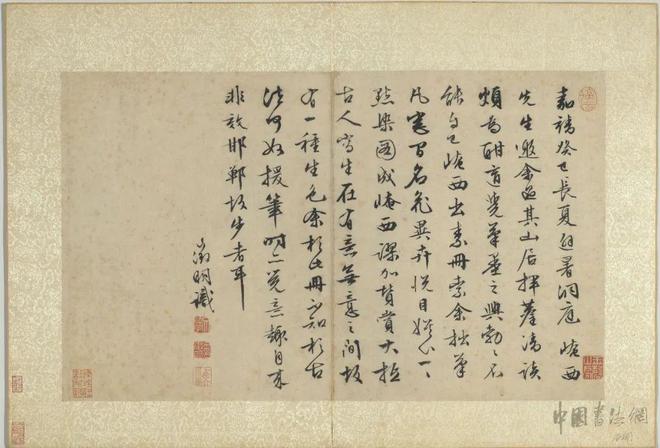 嘉靖癸巳長夏避暑洞庭崦西
先生邀余過其山居揮麈清談
頗為酣適覺筆墨之興勃勃不
能自已崦西出素冊索余拙筆
凡窗間名花異卉悅目娛心一一
點染圖成崦西謬加贊賞大抵
古人寫生在有意無意之間故
有一種生色余於此冊不知於古
法何如援筆時亦覺意趣自來
非效邯鄲故步者耳
徵明識
中国書法網